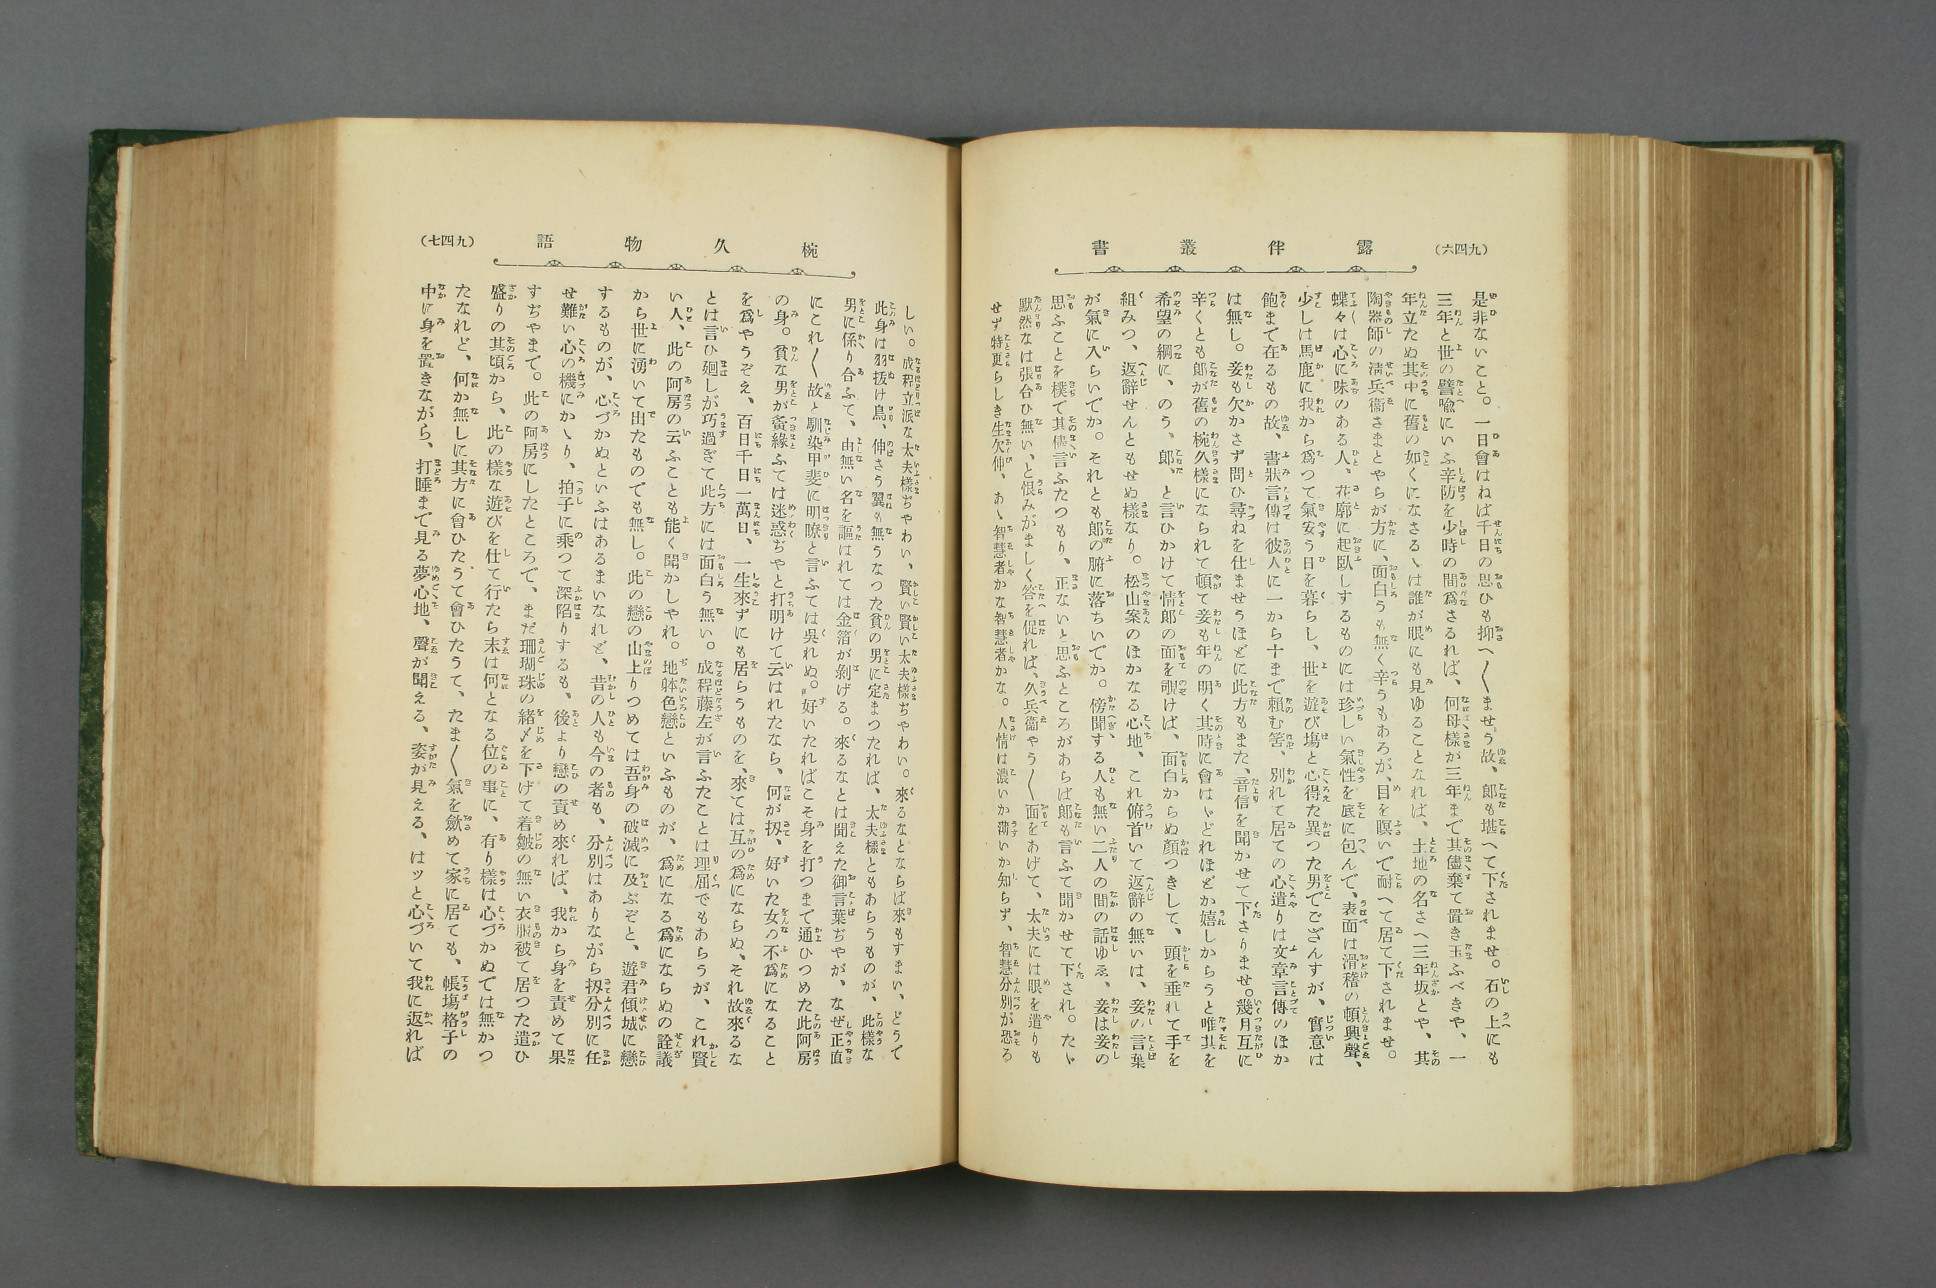 (九四六)
露伴叢書
是非ないこと。一日會はねば千日の思ひも抑へ〳〵ませう故、郎も堪へて下されませ。石の上にも
三年と世の譬喩にいふ辛防を少時の間爲さるれば、何母樣が三年まで其儘棄て置き玉ふべきや、一
年立たぬ其中に舊の如くになさるゝは誰が眼にも見ゆることなれば、土地の名さへ三年坂とや、其
陶器師の淸兵衞さまとやらが方に、面白うも無く辛うもあろが、目を瞑いで耐へて居て下されませ。
蝶々は心に味のある人、花廓に起臥しするものには珍しい氣性を底に包んで、表面は滑稽の頓興聲、
少しは馬鹿に我から爲つて氣安う日を暮らし、世を遊び塲と心得た異つた男でござんすが、實意は
飽まで在るもの故、書狀言傳は彼人に一から十まで賴む筈、別れて居ての心遣りは文章言傳のほか
は無し。妾も欠かさず問ひ尋ねを仕ませうほどに此方もまた、音信を聞かせて下さりませ。幾月互に
辛くとも郎が舊の椀久樣になられて頓て妾も年の明く其時に會はゞどれほどか嬉しからうと唯其を
希望の綱に、のう、郎、と言ひかけて情郎の面を覗けば、面白からぬ顏つきして、頭を垂れて手を
組みつ、返辭せんともせぬ樣なり。松山案のほかなる心地、これ俯首いて返辭の無いは、妾の言葉
が氣に入らいでか。それとも郎の腑に落ちいでか。傍聞する人も無い二人の間の話ゆゑ、妾は妾の
思ふことを樸で其儘言ふたつもり、正ないと思ふところがあらば郎も言ふて聞かせて下され。たゞ
默然なは張合ひ無い、と恨みがましく答を促れば、久兵衞やう〳〵面をあげて、太夫には眼を遣りも
せず特更らしき生欠伸、あゝ智慧者かな智慧者かな。人情は濃いか薄いか知らず、智慧分別が恐ろ
椀久物語
(九四七)
しい。成程立派な太夫樣ぢやわい、賢い賢い太夫樣ぢやわい。來るなとならば來もすまい、どうで
此身は羽拔け鳥、伸さう翼も無うなつた貧の男に定まつたれば、太夫樣ともあらうものが、此樣な
男に係り合ふて、由無い名を謳はれては金箔が剝げる。來るなとは聞えた御言葉ぢやが、なぜ正直
にこれ〳〵故と馴染甲斐に明瞭と言ふては吳れぬ。好いたればこそ身を打つまで通ひつめた此阿房
の身。貧な男が夤緣ふては迷惑ぢやと打明けて云はれたなら、何が扨、好いた女の不爲になること
を爲やうぞえ、百日千日一萬日、一生來ずにも居らうものを、來ては互の爲にならぬ、それ故來るな
とは言ひ廻しが巧過ぎて此方には面白う無い。成程藤左が言ふたことは理屈でもあらうが、これ賢
い人、此の阿房の云ふことも能く聞かしやれ。地躰色戀といふものが、爲になる爲にならぬの詮議
から世に湧いて出たものでも無し。此の戀の山上りつめては吾身の破滅に及ぶぞと、遊君傾城に戀
するものが、心づかぬといふはあるまいなれど、昔の人も今の者も、分別はありながら扨分別に任
せ難い心の機にかゝり、拍子に乘つて深陷りするも、後より戀の責め來れば、我から身を責めて果
すぢやまで。此の阿房にしたところで、まだ珊瑚珠の緖〆を下げて着皺の無い衣服被て居つた遣ひ
盛りの其頃から、此の樣な遊びを仕て行たら末は何となる位の事に、有り樣は心づかぬでは無かつ
たなれど、何か無しに其方に會ひたうて會ひたうて、たま〳〵氣を斂めて家に居ても、帳塲格子の
中に身を置きながら、打睡まで見る夢心地、聲が聞える、姿が見える、はッと心づいて我に返れば